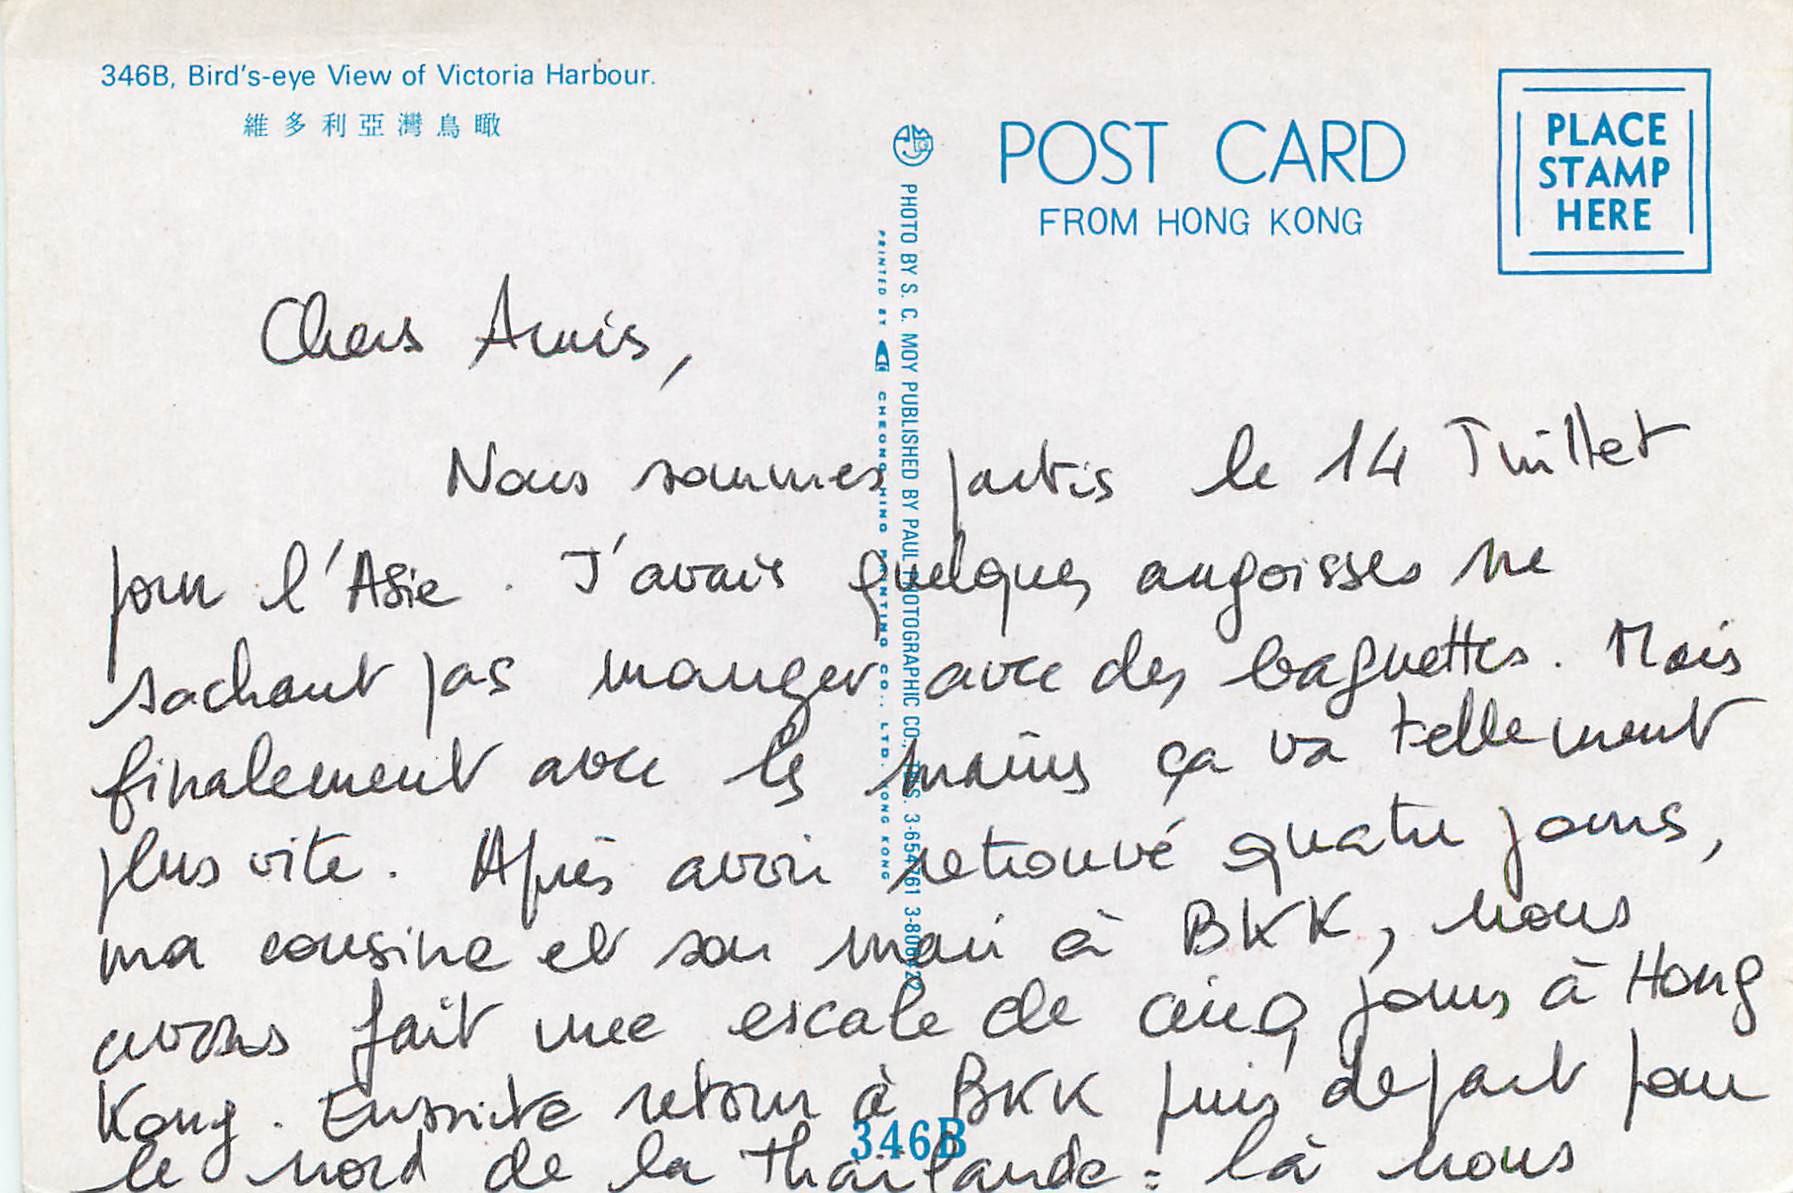 346B, Bird's-eye View of Victoria Harbour.
維多利亞灣鳥瞰
POST CARD
FROM HONG KONG
PLACE
STAMP
HERE
PHOTO BY S. C. MOY PUBLISHED BY PAUL PHOTOGRAPHIC CO., 3-654761
PRINTED BY CHEONG HING PRINTING CO., LTD. HONG KONG
Chers Amis,
Nous sommes partis le 14 Juillet
pour l'Asie. J'avais quelques angoisses ne
sachant pas manger avec des baguettes. Mais
finalement avec les mains ça va tellement
plus vite. Après avoir retrouvé quatre jours,
ma cousine et son mari à BKK, nous
avons fait une escale de cinq jours à Hong
Kong. Ensuite retour à BKK puis départ pour
le nord de la Thaïlande : là nous
346B